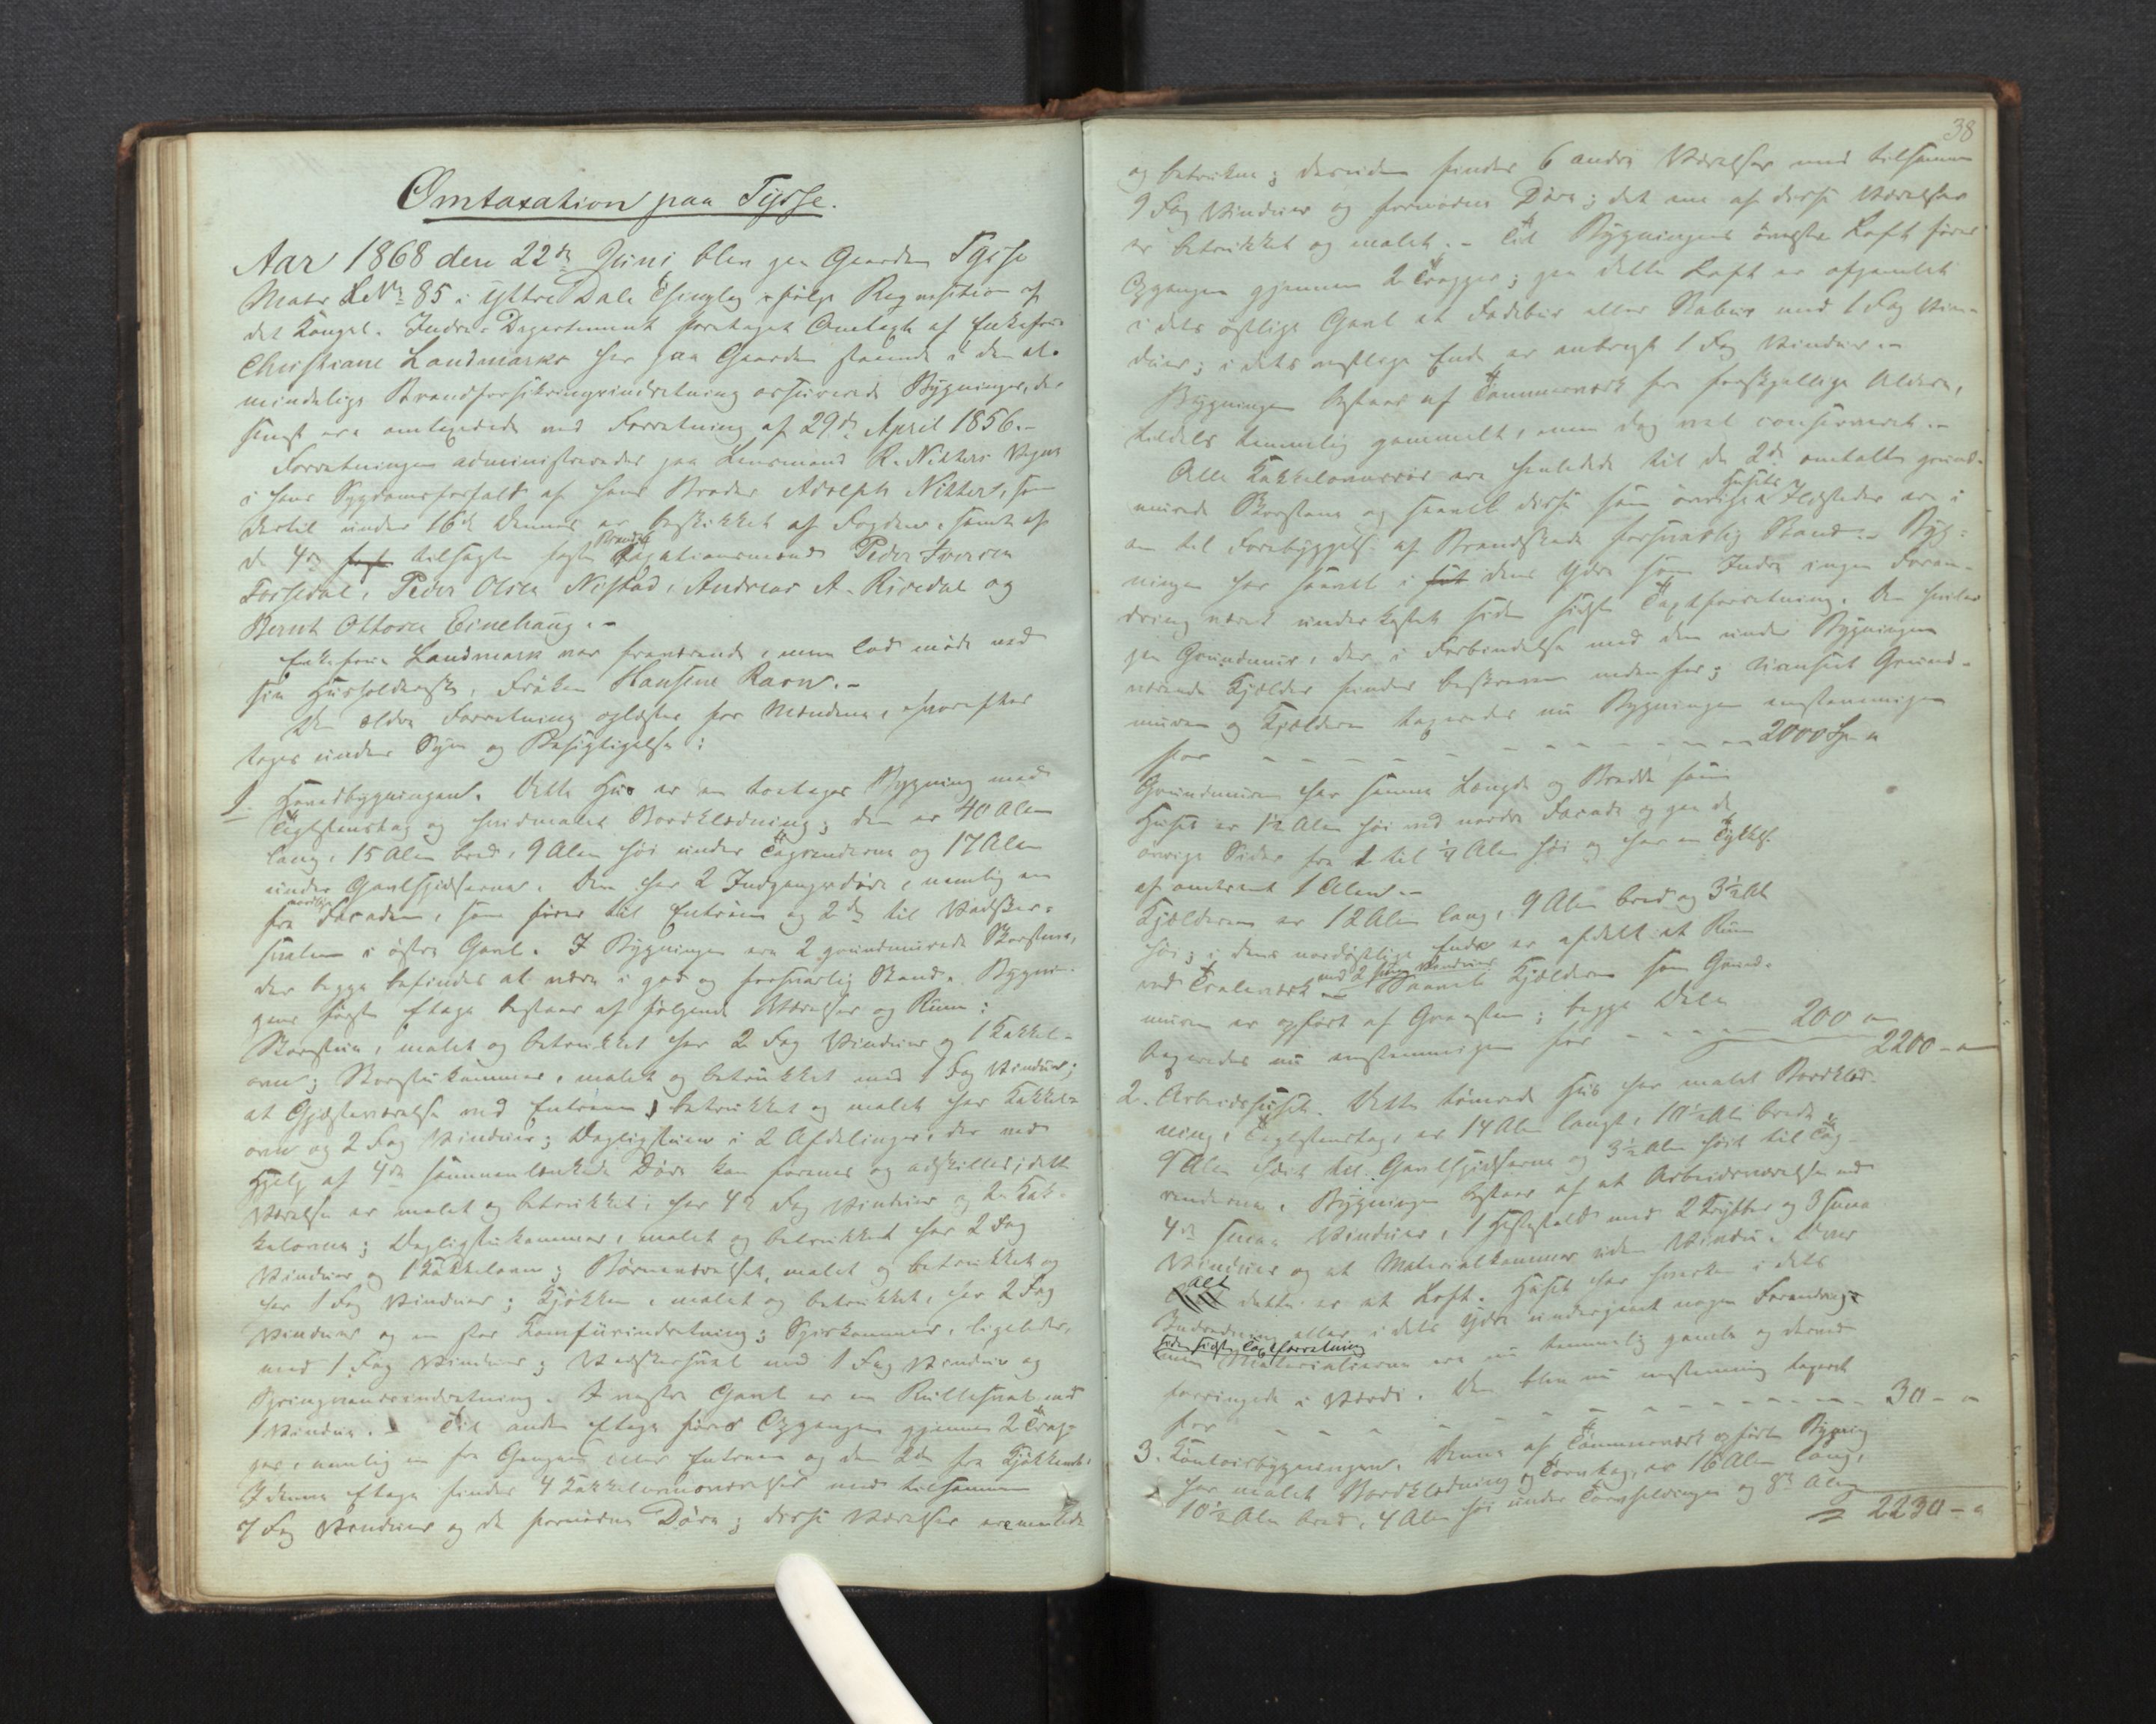 Omtaxation paa Tysse.
Aar 1868 den 22de Juni blev paa Gaarden Tysse
Matr. Løb No 85 i Yttre Dale Thinglag ifølge Reqvisition af
det Kongel. Indre-Departement foretaget Omtaxt af Enkefrue
Christiane Landmarks her paa Gaarden staaende i den al-
mindelige Brandforsikringsindretning assurerede Bygninger, der
senest ere omtaxerede ved Forretning af 29de April 1856.-
Forretningen administreredes paa Lensmand R. Nitters Vegne
i hans Sygdomsforfald af hans Broder Adolph Nitter, som
dertil under 16de dennes er beskikket af Fogden, samt af
de 4re tilsagte faste Brandtaxationsmænd Peder Iversen
Fossedal, Peder Olsen Nistad, Andreas A. Rivedal og
Bernt Ottosen Einehaug.-
Enkefrue Landmark var fraværende, men lod møde ved
sin Husholderske, Frøken Hansine Ravn.-
Den ældre Forretning oplæstes for Mændene, hvorefter
toges under Syn og Besigtigelse:
1. Hovedbygningen. Dette Hus er en toetages Bygning med
Teglstenstag og hvidmalet Bordklædning; den er 40 Alen
lang, 15 Alen bred, 9 Alen høi under Tagrenderne og 17 Alen
under Gavlspidserne. Den har 2 Indgangsdøre, nemlig en
fra nordlige Facaden, som fører til Entréen og 2den til Vadsker-
svalen i østre Gavl. I Bygningen ere 2 grundmurede Skorstene,
der begge befindes at være i god og forsvarlig Stand. Bygnin-
gens første Etage bestaar af følgende Værelser og Rum:
Storstue, malet og betrukket har 2 Fag Vinduer og 1 Kakkel-
ovn; Storstukammer, malet og betrukket med 1 Fag Vinduer;
et Gjæsteværelse ved Entréen, betrukket og malet har Kakkel-
ovn og 2 Fag Vinduer; Dagligstuen i 2 Afdelinger, der ved
Hjelp af 4re sammenlænkede Døre kan forenes og adskilles; dette
Værelse er malet og betrukket, har 4re Fag Vinduer og 2 Kak-
kelovne; Dagligstukammer, malet og betrukket har 2 Fag
Vinduer og 1 Kakkelovn; Børneværelset, malet og betrukket og
har 1 Fag Vinduer; Kjøkken, malet og betrukket, har 2 Fag
Vinduer og en stor Komfurindretning; Spiskammer, ligeledes,
med 1 Fag Vinduer; Vadskersval med 1 Fag Vinduer og
Springvandsindretning. I vestre Gavl er en Rullesval med
1 Vindue.- Til anden Etage fører Opgangen gjennem 2 Trap-
per, nemlig en fra Gangen eller Entreen og den 2den fra Kjøkkenet.
I denne Etage findes 4 Kakkelovnsværelser med tilsammen
7 Fag Vinduer og de fornødne Døre; disse Værelser ere malede
38
og betrukne; desuden findes 6 andre Værelser med tilsammen
9 Fag Vinduer og fornødne Døre; det ene af disse Værelser
er betrukket og malet.- Til Bygningens øverste Loft fører
Opgangen gjennem 2 Trapper; paa dette Loft er afpanelet
i dets østlige Gavl et Fadebur eller Stabur med 1 Fag Vin-
duer; i dets vestlige Ende er anbragt 1 Fag Vinduer.-
Bygningen bestaar af Tømmerværk fra forskjellige Aldere,
tildels temmelig gammelt, men dog vel conserveret.-
Alle Kakkelovnsrør ere henledede til de 2de omtalte grund-
murede Skorstene og saavel disse som øvrige Husets Ildsteder ere i
en til Forebyggelse af Brandskade forsvarlig Stand.- Byg-
ningen har saavel i dens Ydre som Indre ingen Foran-
dring været underkastet siden sidste Taxtforretning. Den hviler
paa Grundmur, der i Forbindelse med den under Bygningen
værende Kjælder findes beskreven nedenfor; uanseet Grund-
muren og Kjælderen taxeredes nu Bygningen enstemmigen
for - - - - - - - - - 2000 Spd
Grundmuren har samme Længde og Bredde som
Huset er 1½ Alen høi ved nordre Facade og paa de
øvrige Sider fra 1 til ¼ Alen høi og har en Tykkelse
af omtrent 1 Alen.-
Kjælderen er 12 Alen lang, 9 Alen bred og 3½ Al.
høi; i dens nordøstlige Ende er afdelt et Rum
ved Tralværk med 2 smaa Vinduer. Saavel Kjælderen som Grund-
muren er opført af Graasten; begge Dele
taxeredes nu enstemmigen for - - - - 200 "
2200 - "
2. Arbeidshuset. Dette tømrede Hus har malet Bordklæd-
ning, Teglstenstag, er 14 Alen langt, 10½ Alen bredt,
9 Alen høit til Gavlspidserne og 3½ Alen høit til Tag-
renderne. Bygningen bestaar af et Arbeidsværelse med
4re smaa Vinduer, 1 Hestestald med 2 Krybber og 3 smaa
Vinduer og et Materialkammer uden Vindue. Over
alt dette er et Loft. Huset har hverken i dets
Indredning eller i dets Ydre undergaaet nogen Forandring
siden sidste Taxtforretning
men Materialierne ere nu temmelig gamle og derved
forringede i Værdi. Den blev nu enstemmig taxeret
for - - - - - - - - - 30 - "
3. Kontoirbygningen. Denne af Tømmerværk opførte Bygning
har malet Bordklædning og Torvtag, er 16 Alen lang,
10½ Alen bred, 4 Alen høi under Torvholdingen og 8te Alen
2230 - "